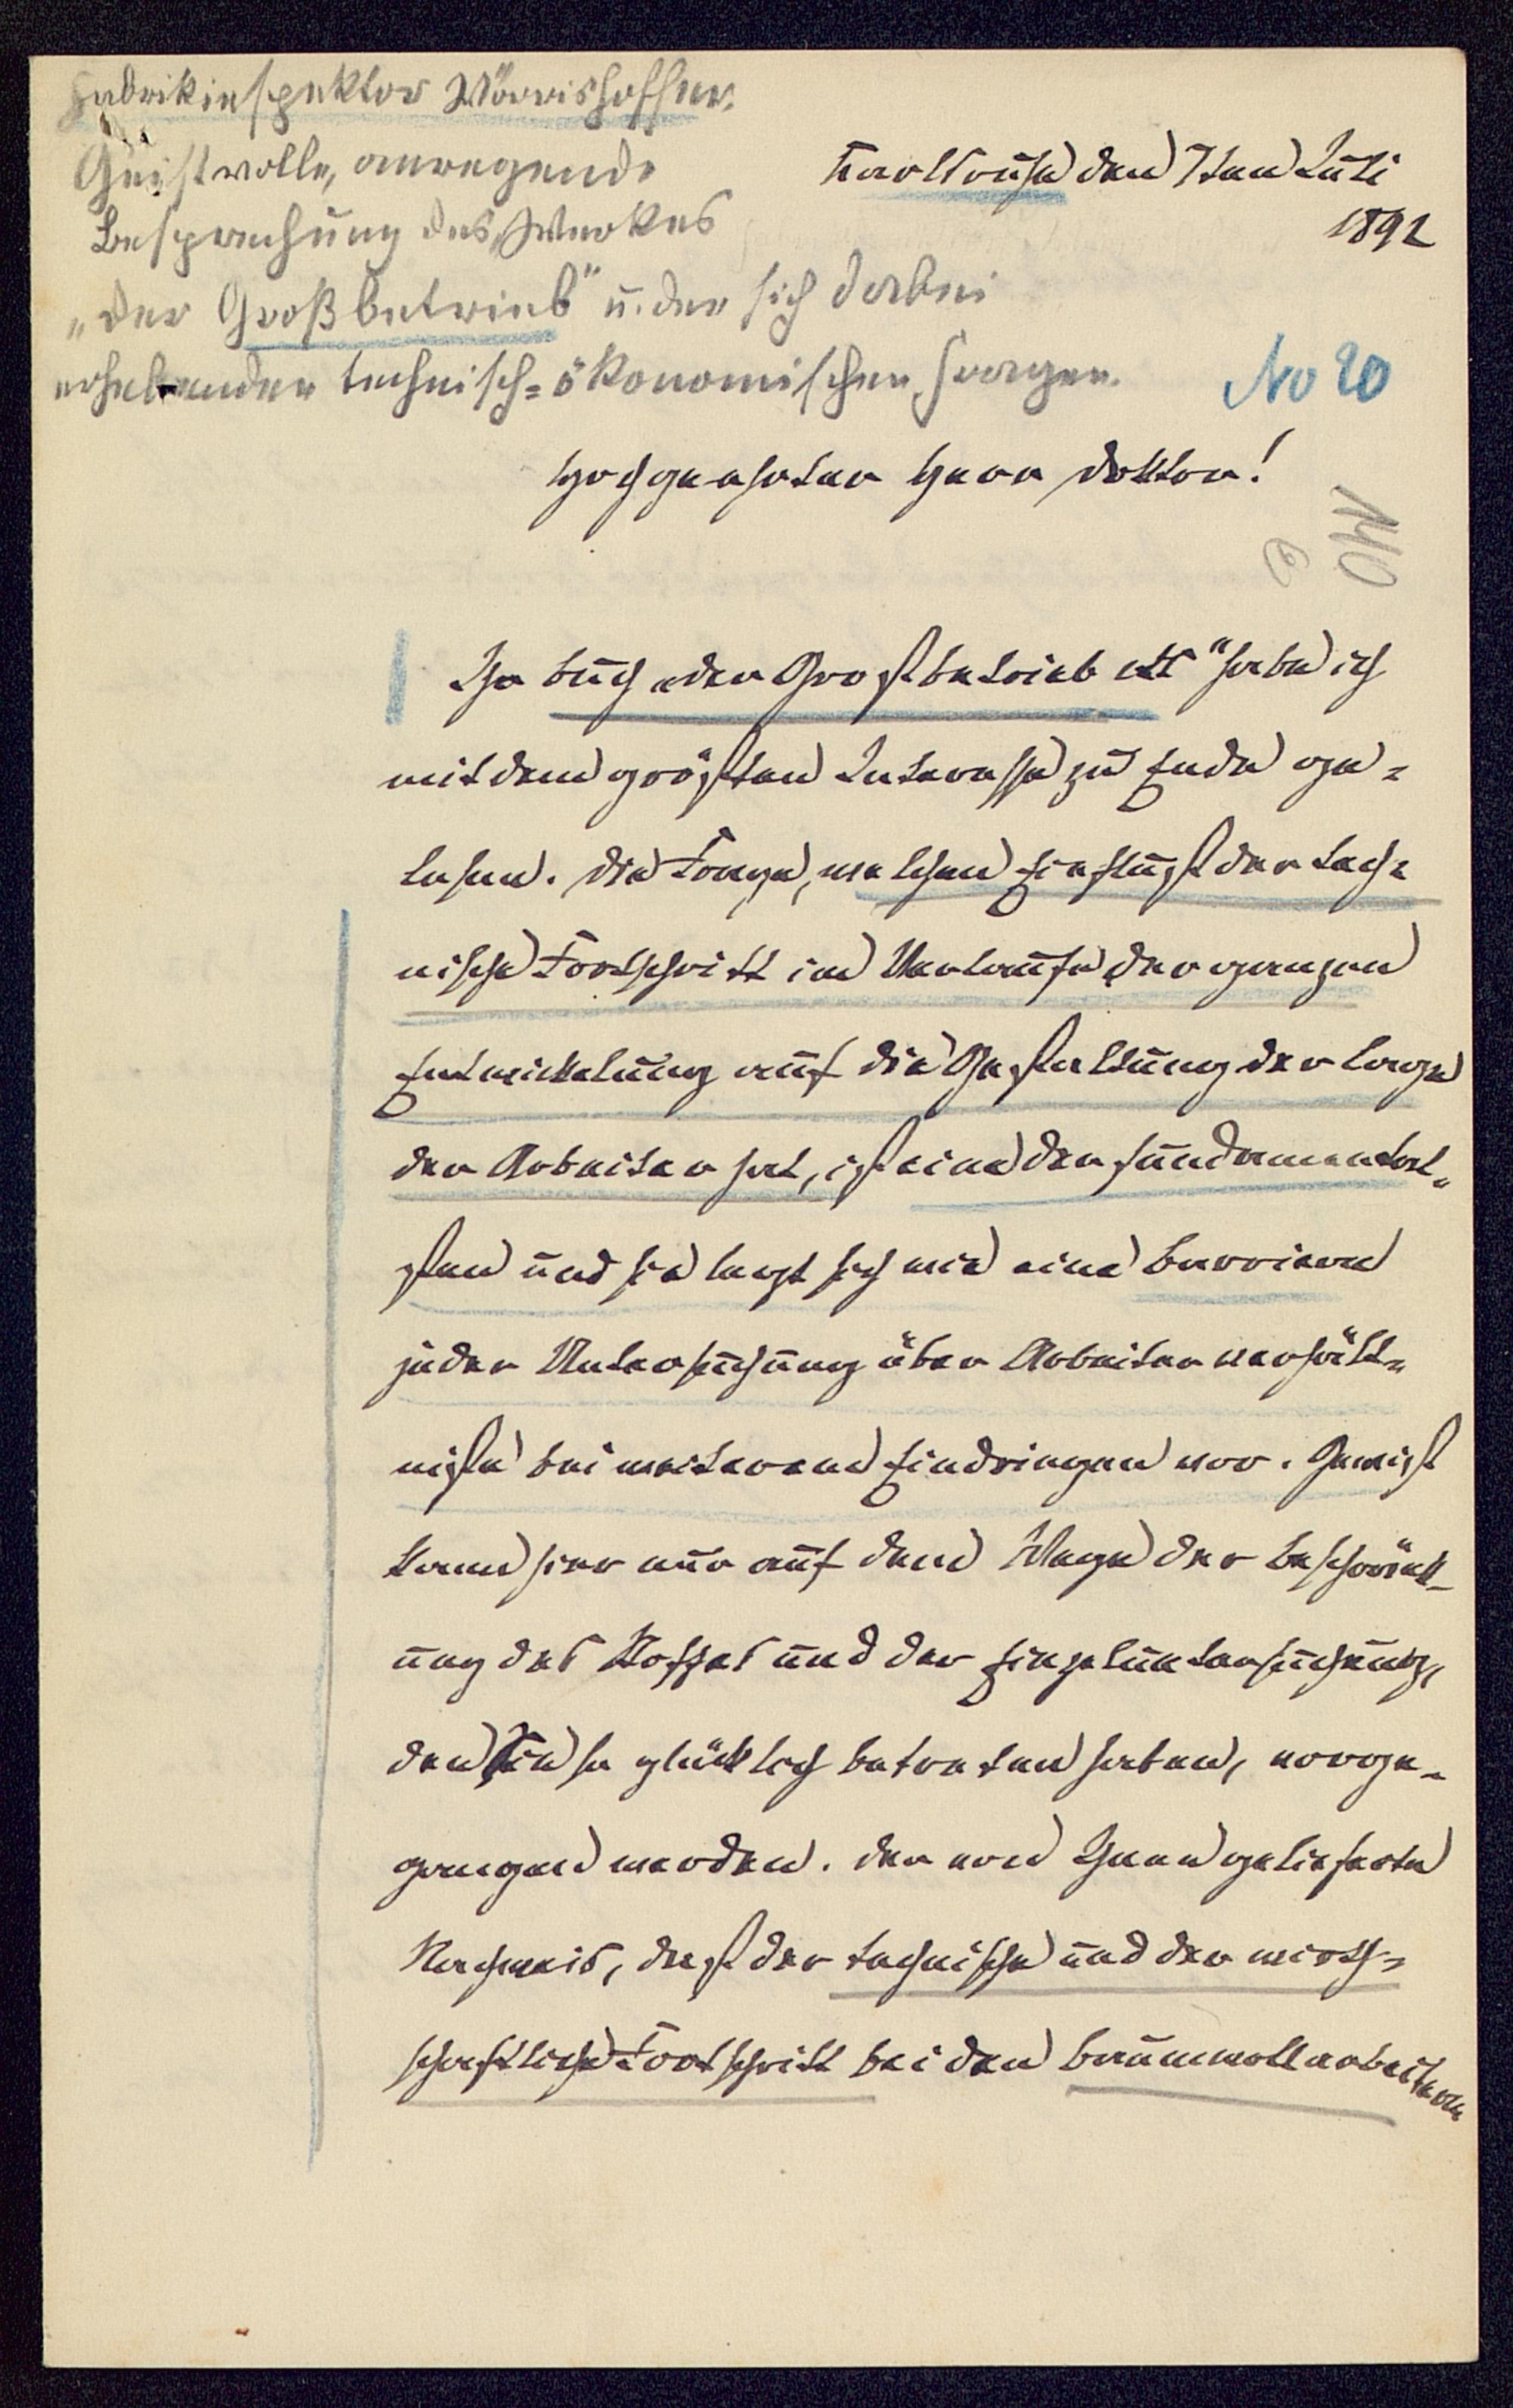 Fabrikinspektor Wörrishoffer.
Geistvolle, anregende
Besprechung des Werkes
„der Großbetrieb" u. der sich dabei
erhebenden technisch-ökonomischen Fragen.
Karlsruhe den 7ten Juli
1892
No 20
Hochgeehrter Herr Doktor!
140
6
Ihr Buch „der Großbetrieb etc" habe ich
mit dem größten Interesse zu Ende ge-
lesen. Die Frage, welchen Einfluß der tech-
nische Fortschritt im Verlaufe der ganzen
Entwickelung auf die Gestaltung der Lage
der Arbeiter hat, ist eine der fundamental-
sten und sie legt sich wie eine Barriere
jeder Untersuchung über Arbeiterverhält-
nisse bei weiterem Eindringen vor. Gewiß
kann hier nur auf dem Wege der Beschränk-
ung des Stoffes und der Einzeluntersuchung,
den Sie so glücklich betreten haben, vorge-
gangen werden. Der von Ihnen gelieferte
Nachweis, daß der technische und der wirth-
schaftliche Fortschritt bei den Baumwollarbeitern